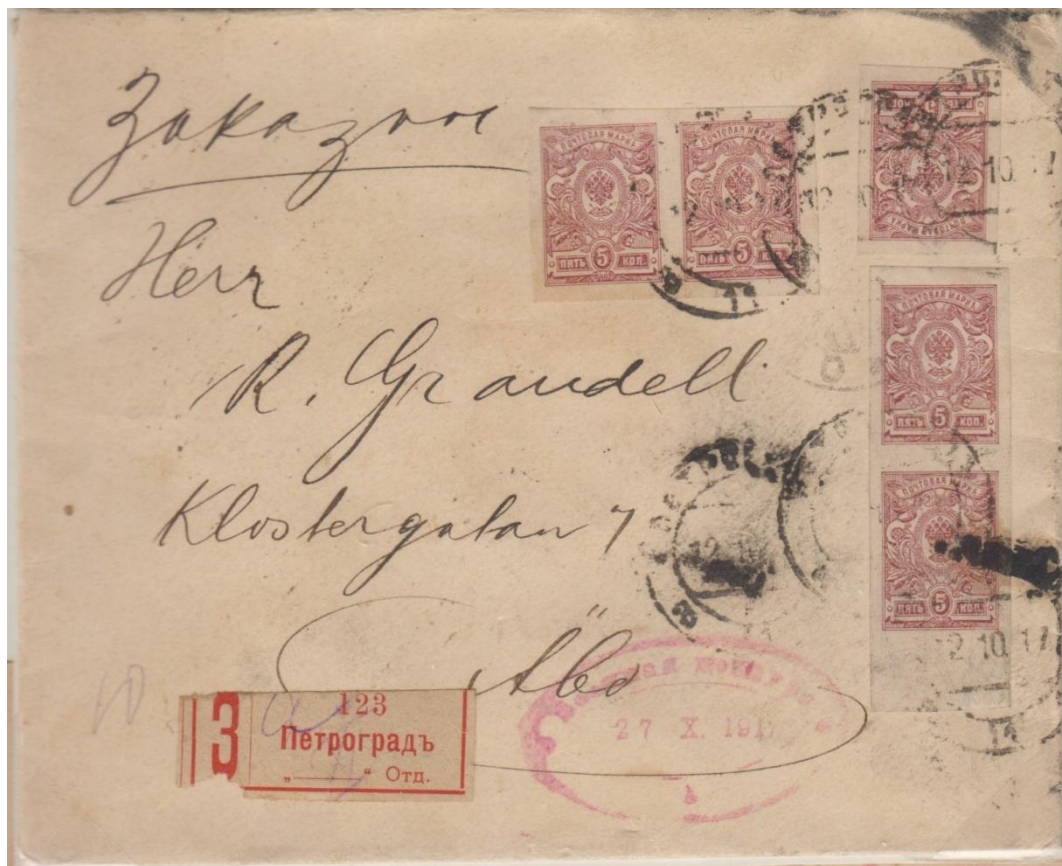 Заказное
Herr
R. Grandell
Klostergatan 7
Åbo
ПОЧТОВАЯ МАРКА
ПЯТЬ 5 КОП.
ПОЧТОВАЯ МАРКА
ПЯТЬ 5 КОП.
ПОЧТОВАЯ МАРКА
ПОЧТОВАЯ МАРКА
ПЯТЬ 5 КОП.
ПОЧТОВАЯ МАРКА
ПЯТЬ 5 КОП.
12.10.17
2.10.17
З
123
Петроградъ
„——“ Отд.
27 X. 191